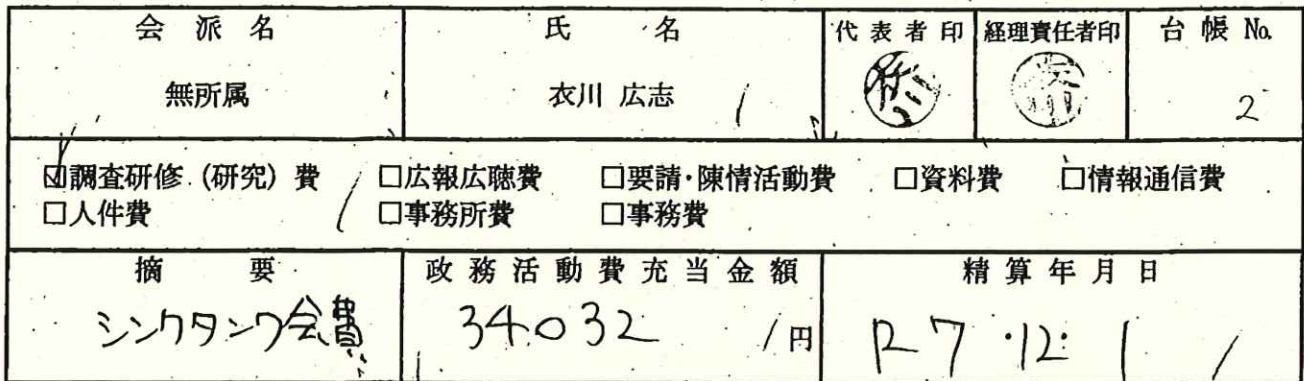 会派名 氏名 代表者印 経理責任者印 台帳No.
無所属 衣川 広志 2
☑調査研修(研究)費 □広報広聴費 □要請・陳情活動費 □資料費 □情報通信費
□人件費 □事務所費 □事務費
摘要 政務活動費充当金額 精算年月日
シンクタンク会費 34032円 R7・12・1